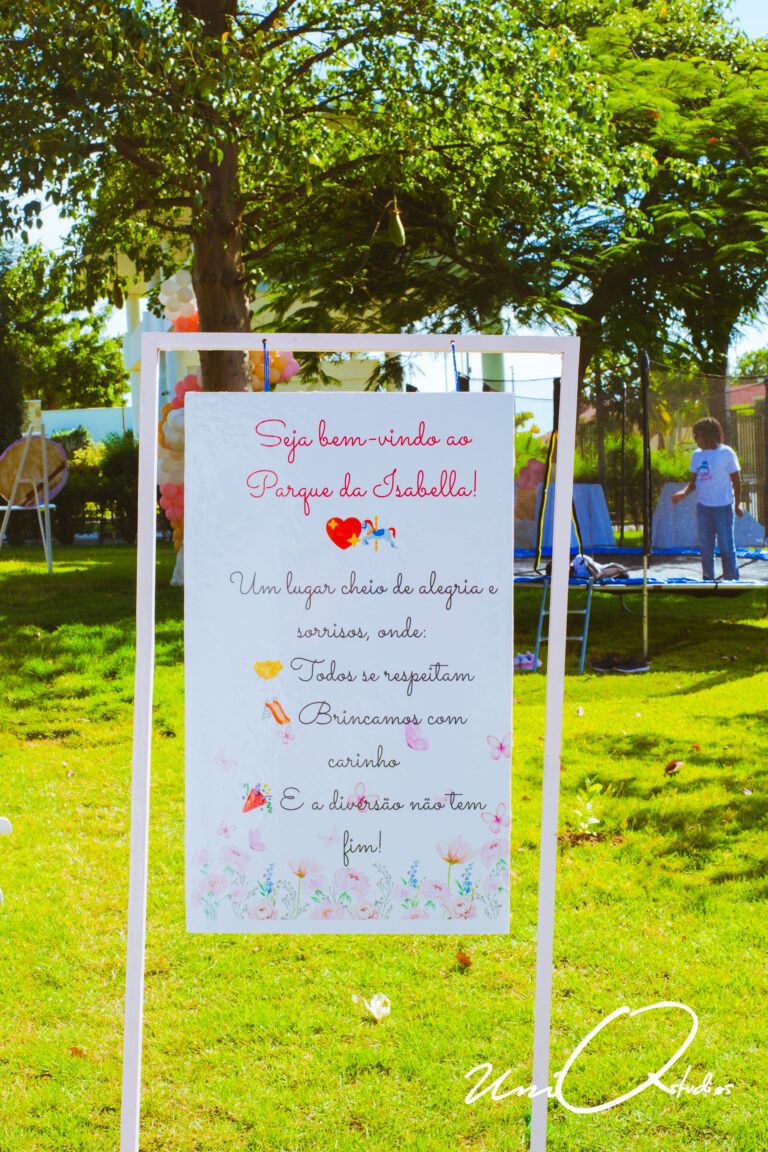 Seja bem-vindo ao
Parque da Isabella!
Um lugar cheio de alegria e
sorrisos, onde:
Todos se respeitam
Brincamos com
carinho
E a diversão não tem
fim!
UniQstudios